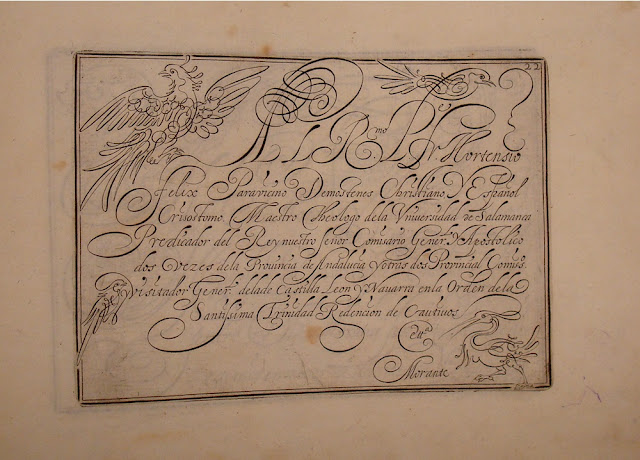 22
AL R.mo P. Fr. Hortensio
Felix Paravicino Demostenes Christiano Y Español
Crisostomo, Maestro Theologo de la Vniuersidad de Salamanca
Predicador del Rey nuestro señor Comisario Gener.l Y Apostolico
dos Vezes de la Prouincia de Andalucia y otras dos Prouincial Comiss.
y visitador Gener.l dela de Castilla Leon y Nauarra en la Orden de la
Santissima Trinidad Redencion de Cautiuos
Morante